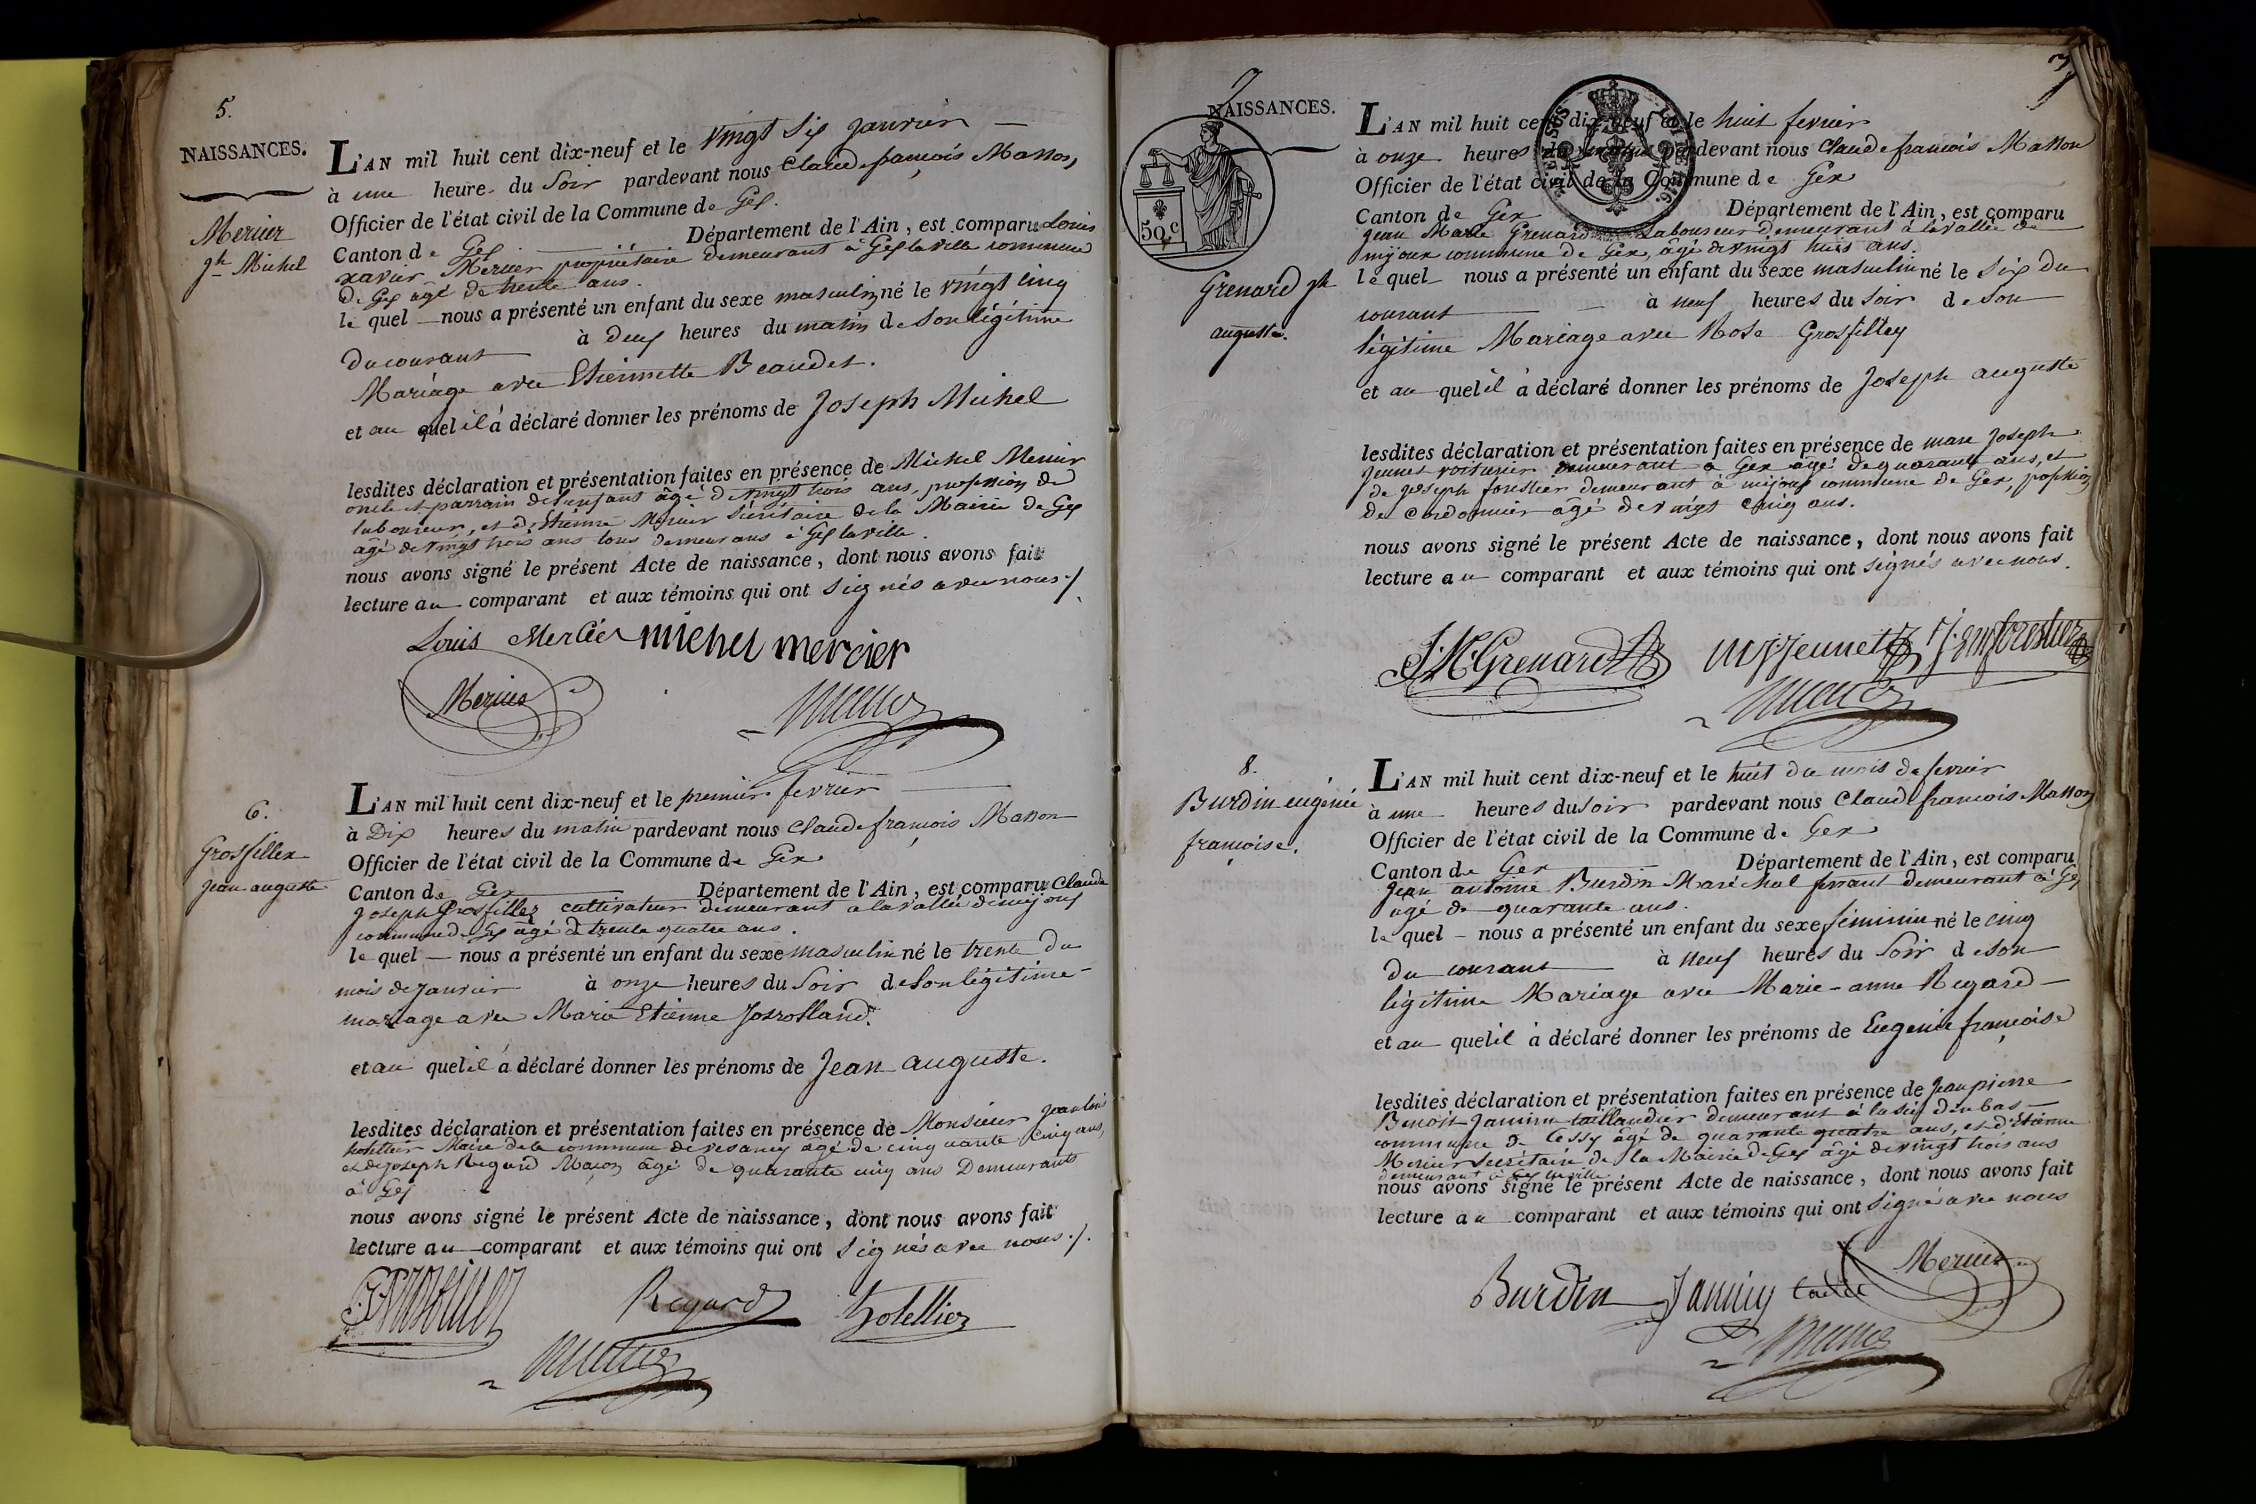 5.
NAISSANCES.
Mercier
jh Michel
L'AN mil huit cent dix-neuf et le vingt six janvier
à une heure du soir pardevant nous Claude françois Masson,
Officier de l'état civil de la Commune de Gex.
Canton de Gex Département de l'Ain, est comparu Louis
xavier Mercier propriétaire demeurant à Gex la ville commune
de Gex âgé de trente ans.
le quel nous a présenté un enfant du sexe masculin né le vingt cinq
du courant à deux heures du matin de son légitime
Mariage avec Etiennette Beaudet.
et au quel il a déclaré donner les prénoms de Joseph Michel
lesdites déclaration et présentation faites en présence de Michel Mercier
oncle et parrain de l'enfant âgé de vingt trois ans, profession de
laboureur, et d'Etienne Mercier secrétaire de la Mairie de Gex
âgé de vingt trois ans tous demeurans à Gex la ville.
nous avons signé le présent Acte de naissance, dont nous avons fait
lecture au comparant et aux témoins qui ont signés avec nous ./.
Louis Mercier michel mercier
Mercier
Masson
6.
Grosfillex
jean auguste
L'AN mil huit cent dix-neuf et le premier fevrier
à Dix heures du matin pardevant nous Claude françois Masson
Officier de l'état civil de la Commune de Gex
Canton de Gex Département de l'Ain, est comparu Claude
Joseph Grosfillex cultivateur demeurant a la vallée de mijoux
commune de Gex âgé de trente quatre ans.
le quel nous a présenté un enfant du sexe masculin né le trente du
mois de janvier à onze heures du soir de son légitime
mariage avec Marie Etienne
et au quel il a déclaré donner les prénoms de Jean auguste.
lesdites déclaration et présentation faites en présence de Monsieur jean louis
hotellier Maire de la commune de vesancy âgé de cinquante cinq ans,
et de joseph Regard Maçon âgé de quarante cinq ans Demeurants
à Gex
nous avons signé le présent Acte de naissance, dont nous avons fait
lecture au comparant et aux témoins qui ont signés avec nous ./.
Regard hotellier
Masson
7
3
NAISSANCES.
50 c
Grenard jh
auguste.
L'AN mil huit cent dix-neuf et le huit fevrier
à onze heures du matin pardevant nous Claude francois Masson
Officier de l'état civil de la Commune de Gex
Canton de Gex Département de l'Ain, est comparu
jean Marie Grenard Laboureur demeurant à la vallée de
mijoux commune de Gex, âgé de vingt huit ans.
le quel nous a présenté un enfant du sexe masculin né le six du
courant à neuf heures du soir de son
légitime Mariage avec Rose Grosfilley
et au quel il a déclaré donner les prénoms de Joseph auguste
lesdites déclaration et présentation faites en présence de marc Joseph
jeunet voiturier demeurant a Gex âgé de quarante ans, et
de joseph forestier demeurant à mijoux commune de Gex, profession
de cordonnier âgé de vingt cinq ans.
nous avons signé le présent Acte de naissance, dont nous avons fait
lecture au comparant et aux témoins qui ont signés avec nous.
J. M. Grenard mj jeunet forestier
Masson
8.
Burdin eugénie
françoise.
L'AN mil huit cent dix-neuf et le huit du mois de fevrier
à une heures du soir pardevant nous Claude francois Masson
Officier de l'état civil de la Commune de Gex
Canton de Gex Département de l'Ain, est comparu
Jean antoine Burdin Maréchal ferrant demeurant à Gex
âgé de quarante ans.
le quel nous a présenté un enfant du sexe féminin né le cinq
du courant à neuf heures du soir de son
légitime Mariage avec Marie-anne Regard
et au quel il a déclaré donner les prénoms de Eugenie françoise
lesdites déclaration et présentation faites en présence de Jean pierre
Benoit Janin taillandier demeurant à
commune de Cessy âgé de quarante quatre ans, et d'Etienne
Mercier secrétaire de la Mairie de Gex âgé de vingt trois ans
demeurant à Gex la ville
nous avons signé le présent Acte de naissance, dont nous avons fait
lecture au comparant et aux témoins qui ont signé avec nous
Mercier
Burdin Janin
Masson